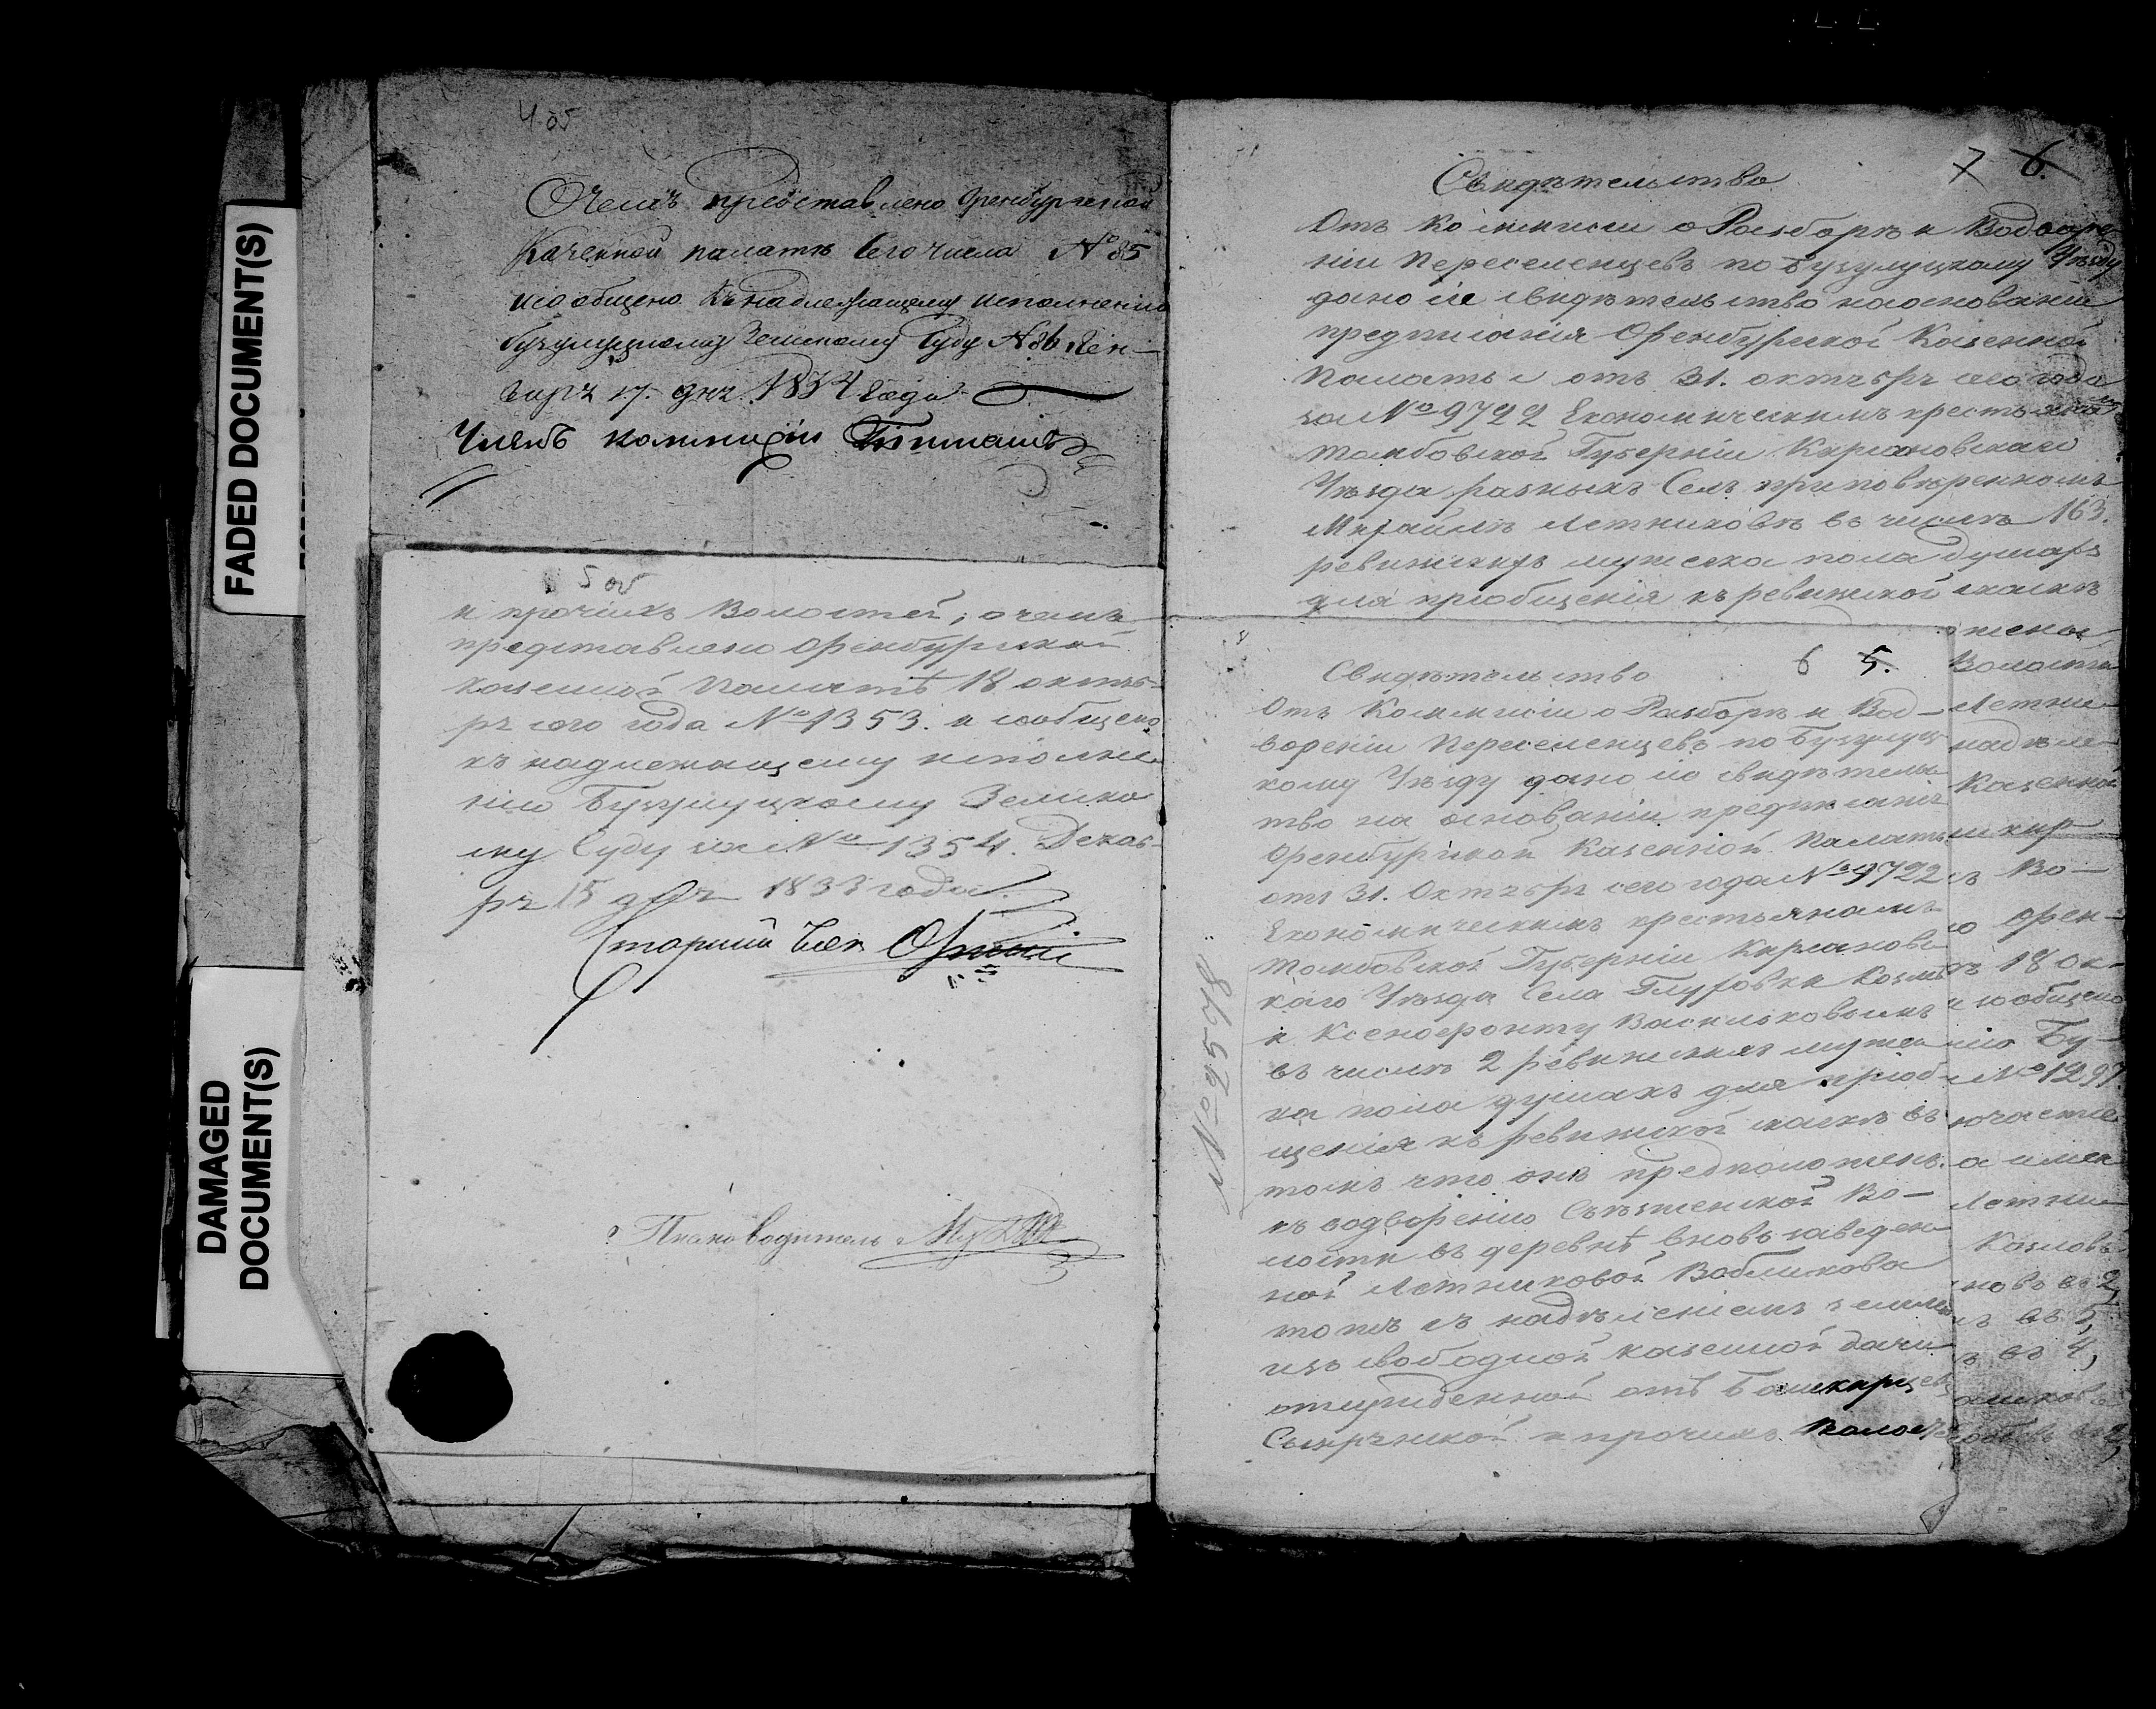 FADED DOCUMENT(S)
DAMAGED
DOCUMENT(S)
4 об
О чемъ представлено Оренбургской
Казенной палатѣ сего числа № 85
и сообщено къ надлежащему исполнению
бузулуцкому Земскому Суду № 86 Ген-
варя 17. дня 1834 года
Членъ коммисіи
5 об
и прочихъ Волостей; о чемъ
представлено Оренбургской
казенной Палатѣ 18 октяб-
ря сего года № 1353. и сообщено
къ надлежащему исполне-
нію Бузулуцкому Земско
му Суду за № 1354. Декаб-
ря 15 дня 1833 года.
Старшій Член
Письмоводитель
7 6.
Свидѣтельство
Отъ Коммисіи о Разборѣ и Водворе-
ніи Переселенцевъ по Бузулуцкому Уѣзду
дано сіе свидѣтельство на основаніи
предписанія Оренбургской Казенной
Палаты отъ 31. октября сего года
за № 9722 Економическимъ крестьянамъ
Тамбовской Губерніи Кирсановскаго
Уѣзда разныхъ Селъ при повѣренномъ
Михайлѣ Летниковѣ въ числѣ 163.
ревижскихъ мужеска пола душахъ
для пріобщенія къ ревижской сказкѣ
6 5.
Свидѣтельство
Отъ Коммисіи о Разборѣ и Вод-
вореніи Переселенцевъ по Бузулуц-
кому Уѣзду дано сіе свидѣтельс-
тво на основаніи предписанія
Оренбургской Казенной Палаты
отъ 31. Октября сего года № 9722
Економическимъ крестьянамъ
Тамбовской Губерніи Кирсановс-
каго Уѣзда Села Глуховки Козмѣ
и Ксенофонту Васильковымъ
въ числѣ 2 ревижскихъ мужес-
ка пола душахъ для пріоб-
щенія къ ревижской сказкѣ въ
томъ что онѣ предположены
къ водворенію Съѣзженской Во-
лости въ деревнѣ вновь заведен-
ной Летниковой Вобликова
тожъ съ надѣленіемъ землею
изъ свободной казенной дачи
отсужденной отъ Башкирцевъ
Сынрянской и прочихъ Волостей
№ 2598
жены
Волости
Летни-
надѣле-
Казенной
Во-
Орен-
18 ок-
и сообщено
нію Бу-
№ 1297
участіе
а имен
Летни-
Козловъ
новъ въ 2,
въ 5,
въ 4,